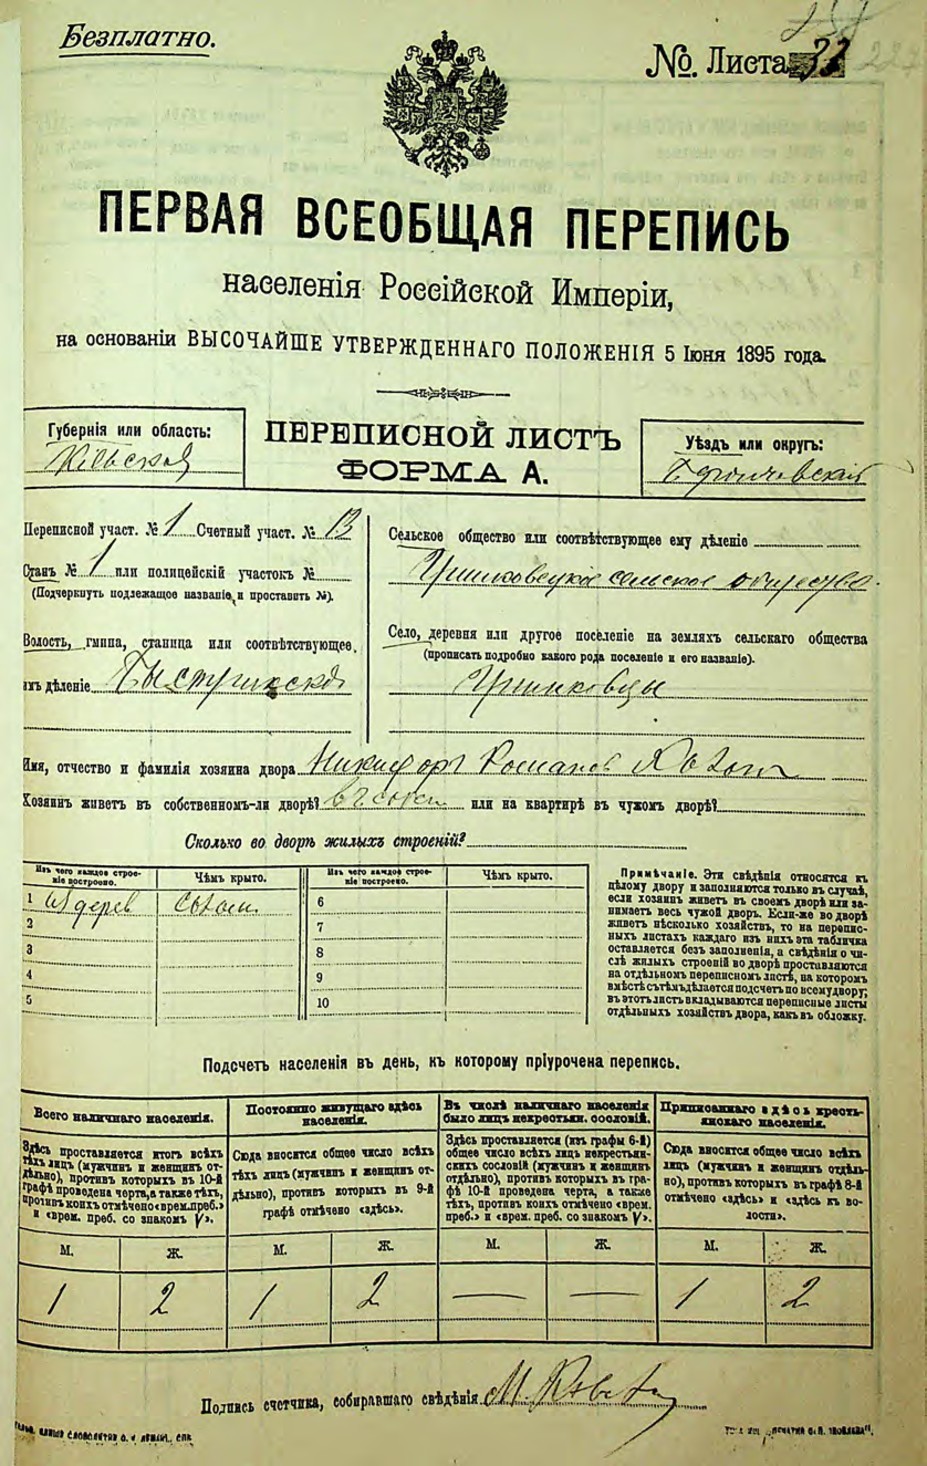 Безплатно.
№ Листа 33
ПЕРВАЯ ВСЕОБЩАЯ ПЕРЕПИСЬ
населенія Россійской Имперіи,
на основаніи ВЫСОЧАЙШЕ УТВЕРЖДЕННАГО ПОЛОЖЕНІЯ 5 Іюня 1895 года.
Губернія или область:
Кіевская
ПЕРЕПИСНОЙ ЛИСТЪ
ФОРМА А.
Уѣздъ или округъ:
Бердичевскій
Переписной участ. № 1 Счетный участ. № 13
Станъ № 1 или полицейскій участокъ №
(Подчеркнуть подлежащое названіе, и проставить №).
Волость, гмина, станица или соотвѣтствующее
имъ дѣленіе Быстрикская
Сельское общество или соотвѣтствующее ему дѣленіе
Гришковецкое сельское общество.
Село, деревня или другое поселеніе на земляхъ сельскаго общества
(прописать подробно какого рода поселеніе и его названіе).
Гришковцы
Имя, отчество и фамилія хозяина двора Никифоръ Романовъ
Хозяинъ живетъ въ собственномъ-ли дворѣ? въ собст. или на квартирѣ въ чужомъ дворѣ?
Сколько во дворѣ жилыхъ строеній?
Изъ чего каждое строеніе построено.
Чѣмъ крыто.
Изъ чего каждое строеніе построено.
Чѣмъ крыто.
1 изъ дерев солом. 6
2 7
3 8
4 9
5 10
Примѣчаніе. Эти свѣдѣнія относятся къ
цѣлому двору и заполняются только въ случаѣ,
если хозяинъ живетъ въ своемъ дворѣ или за-
нимаетъ весь чужой дворъ. Если-же во дворѣ
живетъ нѣсколько хозяйствъ, то на перепис-
ныхъ листахъ каждаго изъ нихъ эта табличка
оставляется безъ заполненія, а свѣдѣнія о чи-
слѣ жилыхъ строеній во дворѣ проставляются
на отдѣльномъ переписномъ листѣ, на которомъ
вмѣстѣ съ тѣмъ дѣлается подсчетъ по всему двору;
въ этотъ листъ вкладываются переписные листы
отдѣльныхъ хозяйствъ двора, какъ въ обложку.
Подсчетъ населенія въ день, къ которому пріурочена перепись.
Всего наличнаго населенія.
Здѣсь проставляется итогъ всѣхъ
тѣхъ лицъ (мужчинъ и женщинъ от-
дѣльно), противъ которыхъ въ 10-й
графѣ проведена черта, а также тѣхъ,
противъ коихъ отмѣчено «врем. преб.»
и «врем. преб. со знакомъ V».
Постоянно живущаго здѣсь
населенія.
Сюда вносится общее число всѣхъ
тѣхъ лицъ (мужчинъ и женщинъ от-
дѣльно), противъ которыхъ въ 9-й
графѣ отмѣчено «здѣсь».
Въ числѣ наличнаго населенія
было лицъ некрестьян. сословій.
Здѣсь проставляется (изъ графы 6-й)
общее число всѣхъ лицъ некрестьян-
скихъ сословій (мужчинъ и женщинъ
отдѣльно), противъ которыхъ въ гра-
фѣ 10-й проведена черта, а также
тѣхъ, противъ коихъ отмѣчено «врем.
преб.» и «врем. преб. со знакомъ V».
Приписаннаго здѣсь кресть-
янскаго населенія.
Сюда вносится общее число всѣхъ
лицъ (мужчинъ и женщинъ отдѣль-
но), противъ которыхъ въ графѣ 8-й
отмѣчено «здѣсь» и «здѣсь къ во-
лости».
М. Ж. М. Ж. М. Ж. М. Ж.
1 2 1 2 — — 1 2
Подпись счетчика, собиравшаго свѣдѣнія М.